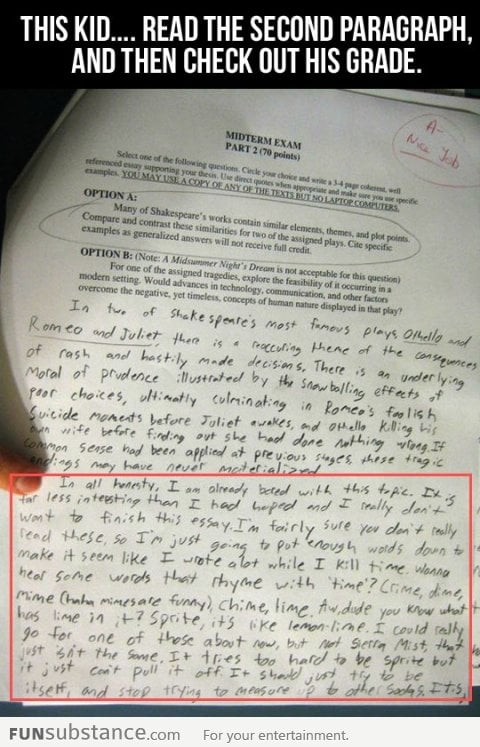 THIS KID.... READ THE SECOND PARAGRAPH,
AND THEN CHECK OUT HIS GRADE.
A-
Nice Job
MIDTERM EXAM
PART 2 (70 points)
Select one of the following questions. Circle your choice and write a 3-4 page coherent, well
referenced essay supporting your thesis. Use direct quotes when appropriate and make sure you use specific
examples. YOU MAY USE A COPY OF ANY OF THE TEXTS BUT NO LAPTOP COMPUTERS.
OPTION A:
Many of Shakespeare's works contain similar elements, themes, and plot points.
Compare and contrast these similarities for two of the assigned plays. Cite specific
examples as generalized answers will not receive full credit.
OPTION B: (Note: A Midsummer Night's Dream is not acceptable for this question)
For one of the assigned tragedies, explore the feasibility of it occurring in a
modern setting. Would advances in technology, communication, and other factors
overcome the negative, yet timeless, concepts of human nature displayed in that play?
In two of Shakespeare's most famous plays, Othello and
Romeo and Juliet, there is a reoccuring theme of the consequences
of rash and hastily made decisions. There is an underlying
moral of prudence illustrated by the snowballing effects of
poor choices, ultimatly culminating in Romeo's foolish
suicide moments before Juliet awakes, and Othello killing his
own wife before finding out she had done nothing wrong. If
common sense had been applied at previous stages, these tragic
endings may have never materialized.
In all honesty, I am already bored with this topic. It is
far less intersting than I had hoped and I really don't
want to finish this essay. I'm fairly sure you don't really
read these, so I'm just going to put enough words down to
make it seem like I wrote alot while I kill time. Wanna
hear some words that rhyme with 'time'? Crime, dime,
mime (haha mimes are funny), chime, lime. Aw, dude you know what
has lime in it? Sprite, it's like lemon-lime. I could really
go for one of those about now, but not Sierra Mist, that
just isn't the same. It tries too hard to be sprite but
it just can't pull it off. It should just try to be
itself, and stop trying to measure up to other sodas. It is,
FUNsubstance.com For your entertainment.